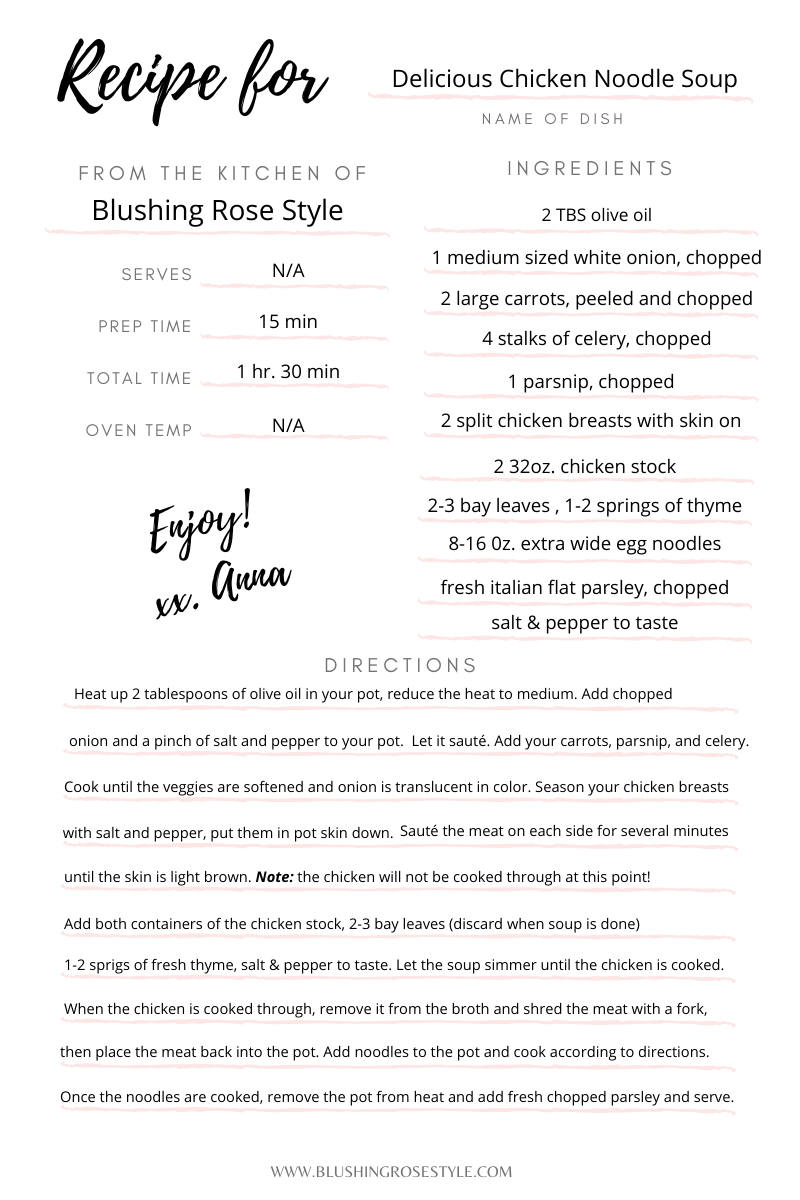 Recipe for
Delicious Chicken Noodle Soup
NAME OF DISH
FROM THE KITCHEN OF
Blushing Rose Style
SERVES N/A
PREP TIME 15 min
TOTAL TIME 1 hr. 30 min
OVEN TEMP N/A
Enjoy!
xx. Anna
INGREDIENTS
2 TBS olive oil
1 medium sized white onion, chopped
2 large carrots, peeled and chopped
4 stalks of celery, chopped
1 parsnip, chopped
2 split chicken breasts with skin on
2 32oz. chicken stock
2-3 bay leaves , 1-2 springs of thyme
8-16 0z. extra wide egg noodles
fresh italian flat parsley, chopped
salt & pepper to taste
DIRECTIONS
Heat up 2 tablespoons of olive oil in your pot, reduce the heat to medium. Add chopped
onion and a pinch of salt and pepper to your pot. Let it sauté. Add your carrots, parsnip, and celery.
Cook until the veggies are softened and onion is translucent in color. Season your chicken breasts
with salt and pepper, put them in pot skin down. Sauté the meat on each side for several minutes
until the skin is light brown. Note: the chicken will not be cooked through at this point!
Add both containers of the chicken stock, 2-3 bay leaves (discard when soup is done)
1-2 sprigs of fresh thyme, salt & pepper to taste. Let the soup simmer until the chicken is cooked.
When the chicken is cooked through, remove it from the broth and shred the meat with a fork,
then place the meat back into the pot. Add noodles to the pot and cook according to directions.
Once the noodles are cooked, remove the pot from heat and add fresh chopped parsley and serve.
WWW.BLUSHINGROSESTYLE.COM